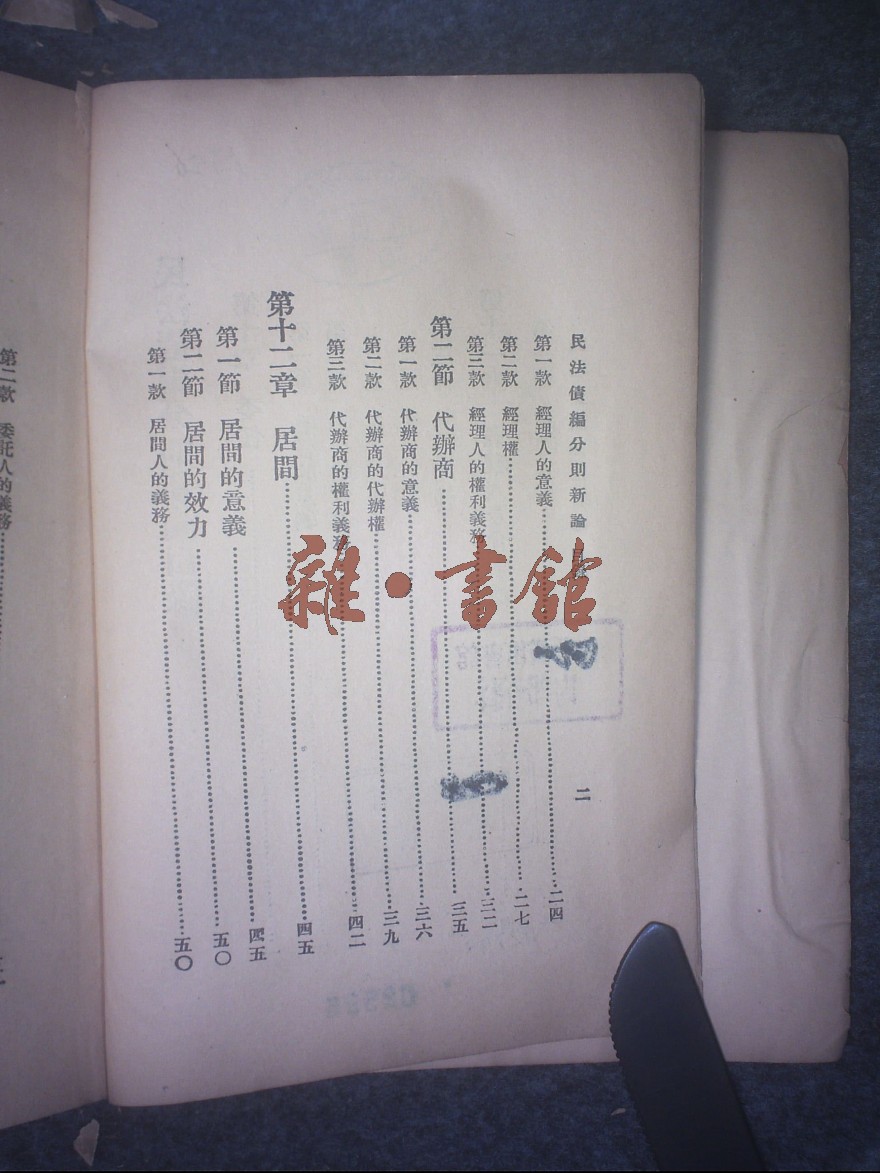 民法債編分則新論
二
第一款 經理人的意義……二四
第二款 經理權……二七
第三款 經理人的權利義務……三二
第二節 代辦商……三五
第一款 代辦商的意義……三六
第二款 代辦商的代辦權……三九
第三款 代辦商的權利義務……四二
第十二章 居間……四五
第一節 居間的意義……四五
第二節 居間的效力……五〇
第一款 居間人的義務……五〇
第二款 委託人的義務……
雜·書館